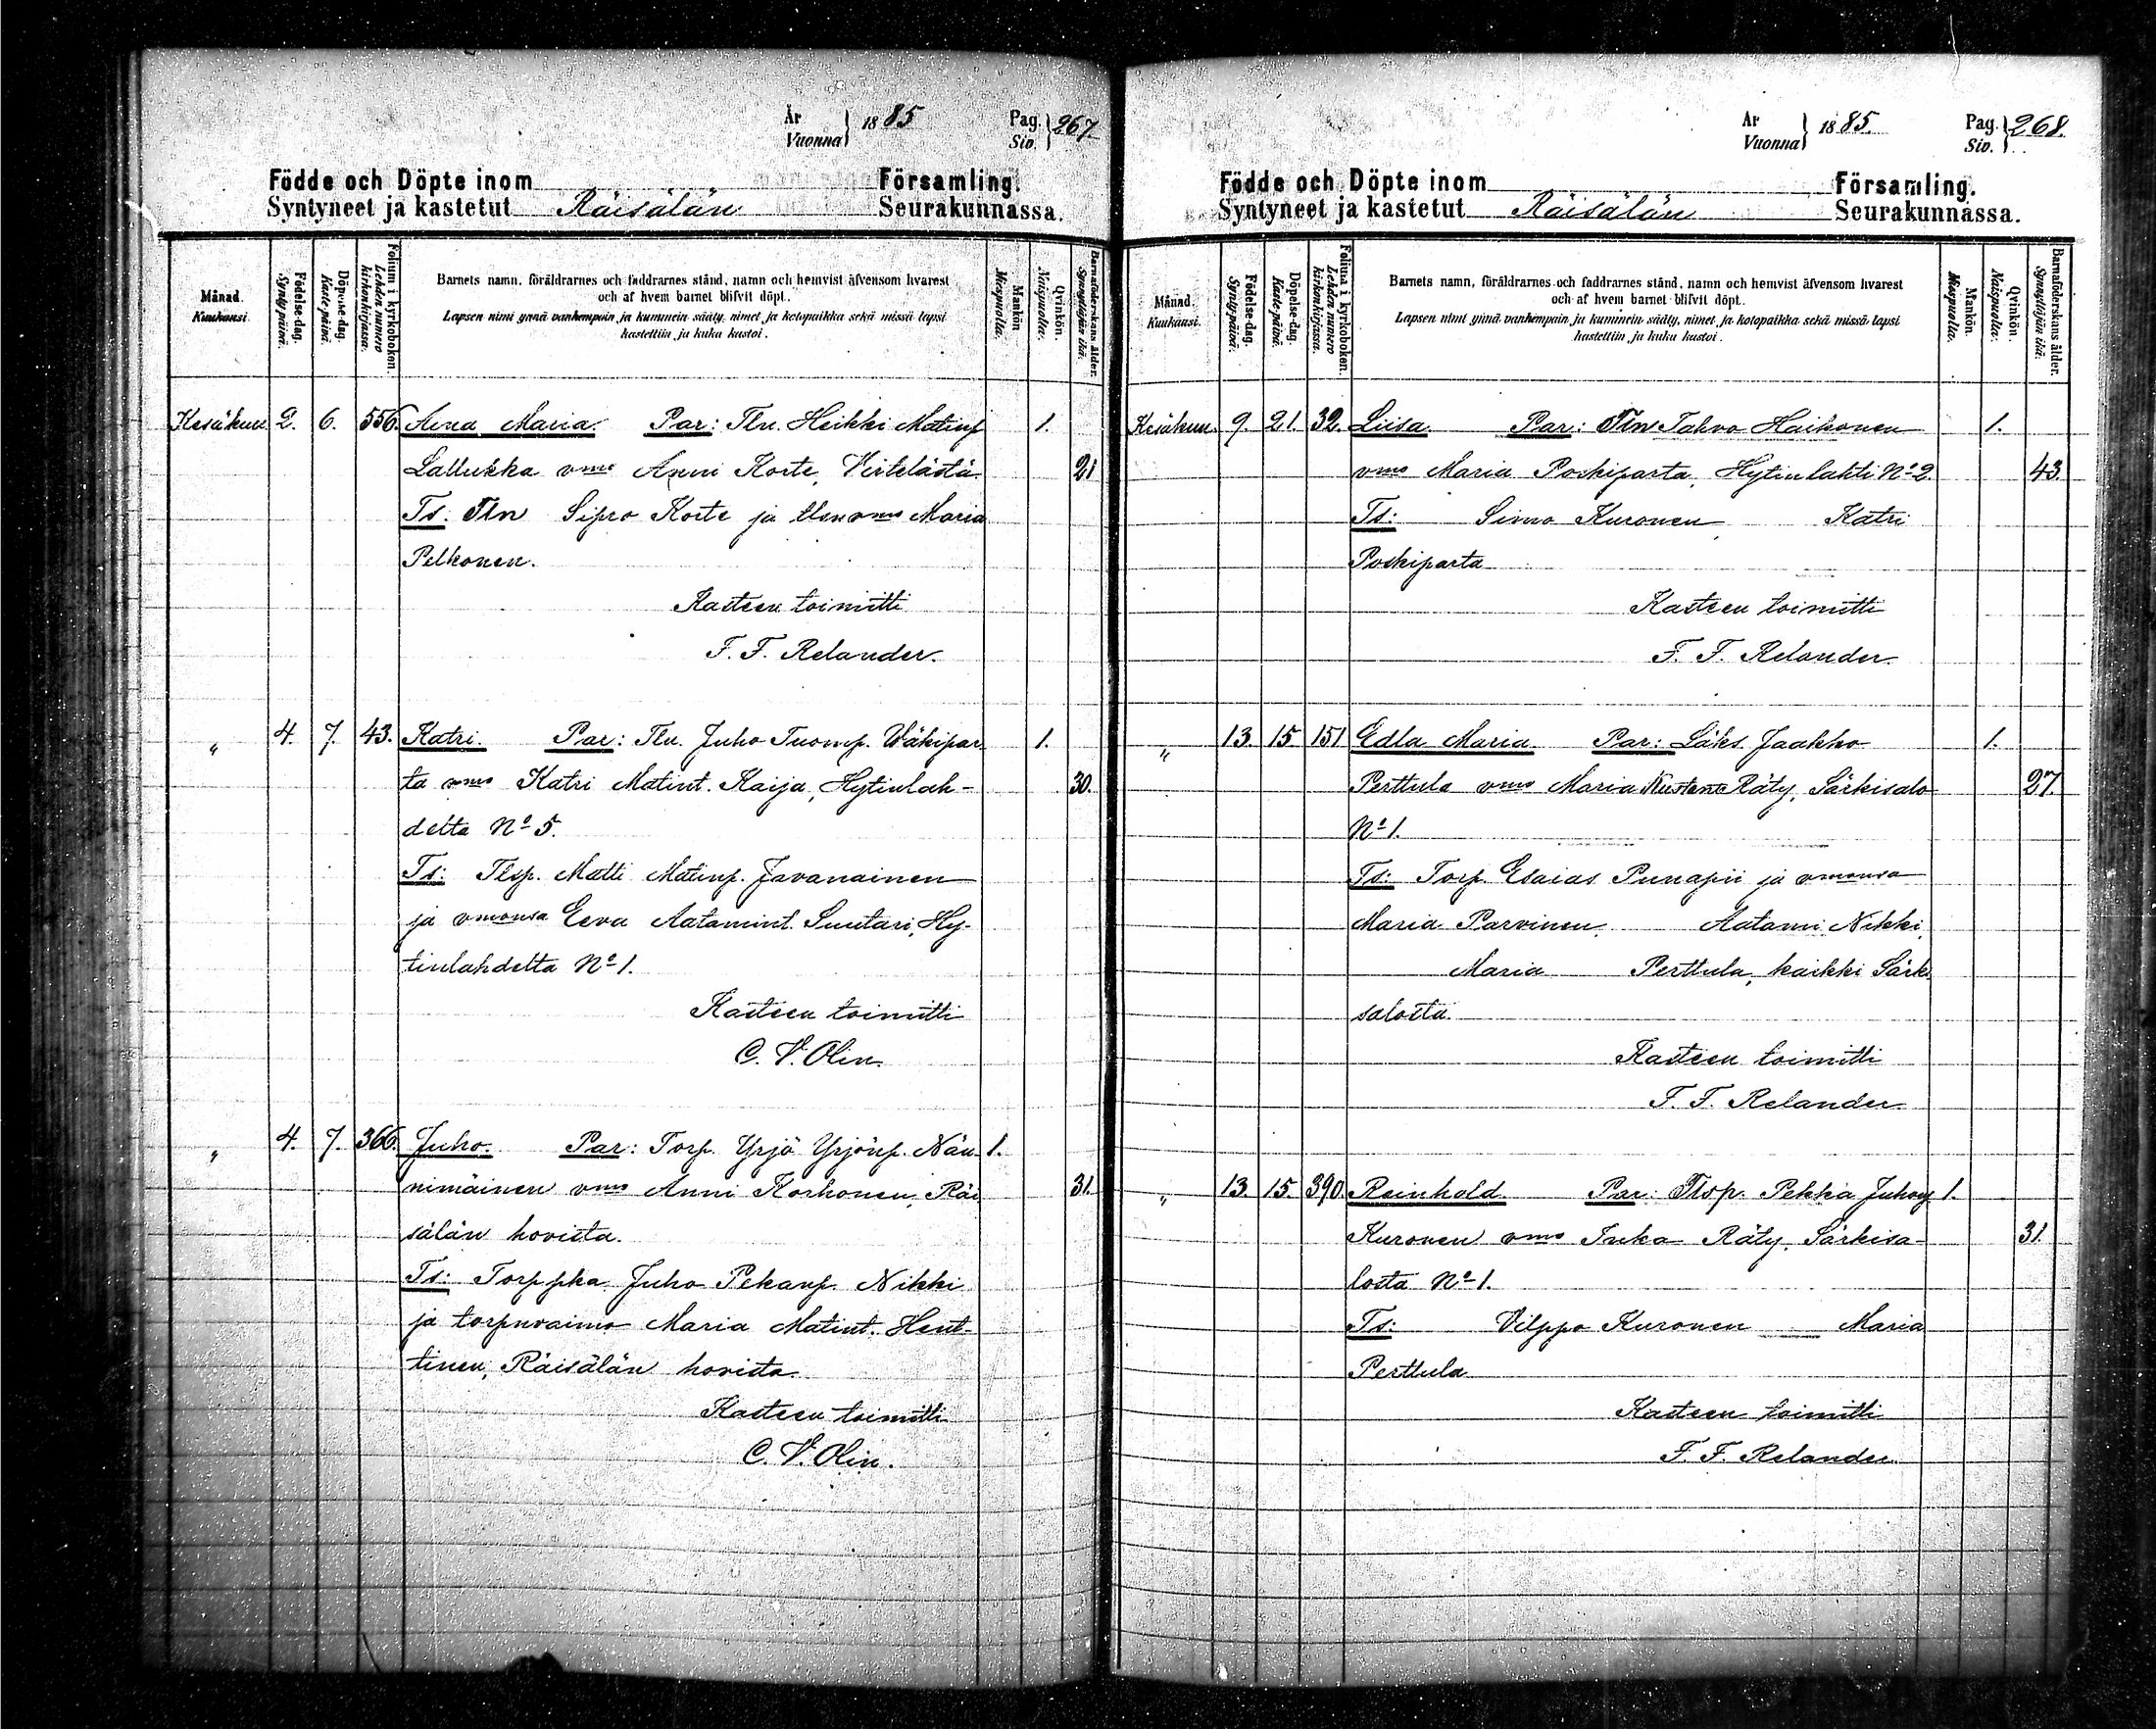 År
Vuonna } 1885
Pag.
Siv. } 267.
Födde och Döpte inom Församling.
Syntyneet ja kastetut Räisälän Seurakunnassa.
Månad. Kuukausi.
Födelse-dag. Syntypäivä.
Döpelse-dag. Kaste-päivä.
Folium i kyrkoboken. Lehden numero kirkonkirjassa.
Barnets namn, föräldrarnes och faddrarnes stånd, namn och hemvist äfvensom hvarest
och af hvem barnet blifvit döpt.
Lapsen nimi ynnä vanhempain ja kummein sääty, nimet ja kotopaikka sekä missä lapsi
kastettiin ja kuka kastoi.
Mankön. Miespuolia.
Qvinkön. Naispuolia.
Barnaföderskans ålder. Synnyttäjän ikä.
Kesäkuu 2. 6. 556. Aina Maria. Par: Tln. Heikki Matinp 1.
Lallukka vmo Anni Korte, Kirtelästä 21
Ts. Tln Sipro Korte ja tlonvmo Maria
Pelkonen.
Kasteen toimitti
F. F. Relander.
" 4. 7. 43. Katri. Par: Tln. Juho Tuomp. Wäkipar 1.
ta vmo Katri Matint. Kaija, Hytinlah- 30.
delta No 5.
Ts: Tlsp. Matti Matinp. Javanainen
ja vmonsa Eeva Aatamint. Suutari, Hy-
tinlahdelta No 1.
Kasteen toimitti
C. V. Olin.
" 4. 7. 366. Juho. Par: Torp. Yrjö Yrjönp. Nän 1.
nimäinen vmo Anni Korhonen, Räi 31.
sälän hovista.
Ts: Torppka Juho Pekanp. Nikki
ja torpuvaimo Maria Matint. Hent-
tinen, Räisälän hovista.
Kasteen toimitti
C. V. Olin.
År
Vuonna } 1885.
Pag.
Siv. } 268.
Födde och Döpte inom Församling.
Syntyneet ja kastetut Räisälän Seurakunnassa.
Månad. Kuukausi.
Födelse-dag. Syntypäivä.
Döpelse-dag. Kaste-päivä.
Folium i kyrkoboken. Lehden numero kirkonkirjassa.
Barnets namn, föräldrarnes och faddrarnes stånd, namn och hemvist äfvensom hvarest
och af hvem barnet blifvit döpt.
Lapsen nimi ynnä vanhempain ja kummein sääty, nimet ja kotopaikka sekä missä lapsi
kastettiin ja kuka kastoi.
Mankön. Miespuolia.
Qvinkön. Naispuolia.
Barnaföderskans ålder. Synnyttäjän ikä.
Kesäkuu. 9. 21. 32. Liisa. Par: Tln Tahvo Haikonen 1.
vmo Maria Poskiparta, Hytinlahti No 2. 43.
Ts: Simo Kuronen Katri
Poskiparta
Kasteen toimitti
F. F. Relander
" 13. 15. 151 Edla Maria. Par: Läks. Jaakko 1.
Perttula vmo Maria Räty, Särkisalo 27.
No 1.
Ts: Torp. Esaias Punapii ja vmonsa
Maria Parvinen. Aatami Nikki,
Maria Perttula, kaikki Särk
salosta.
Kasteen toimitti
F. F. Relander
" 13. 15. 390 Reinhold. Par: Tlsp. Pekka Juhop 1.
Kuronen vmo Inka Räty, Särkisa- 31.
losta No 1.
Ts: Vilppo Kuronen Maria
Perttula
Kasteen toimitti
F. F. Relander